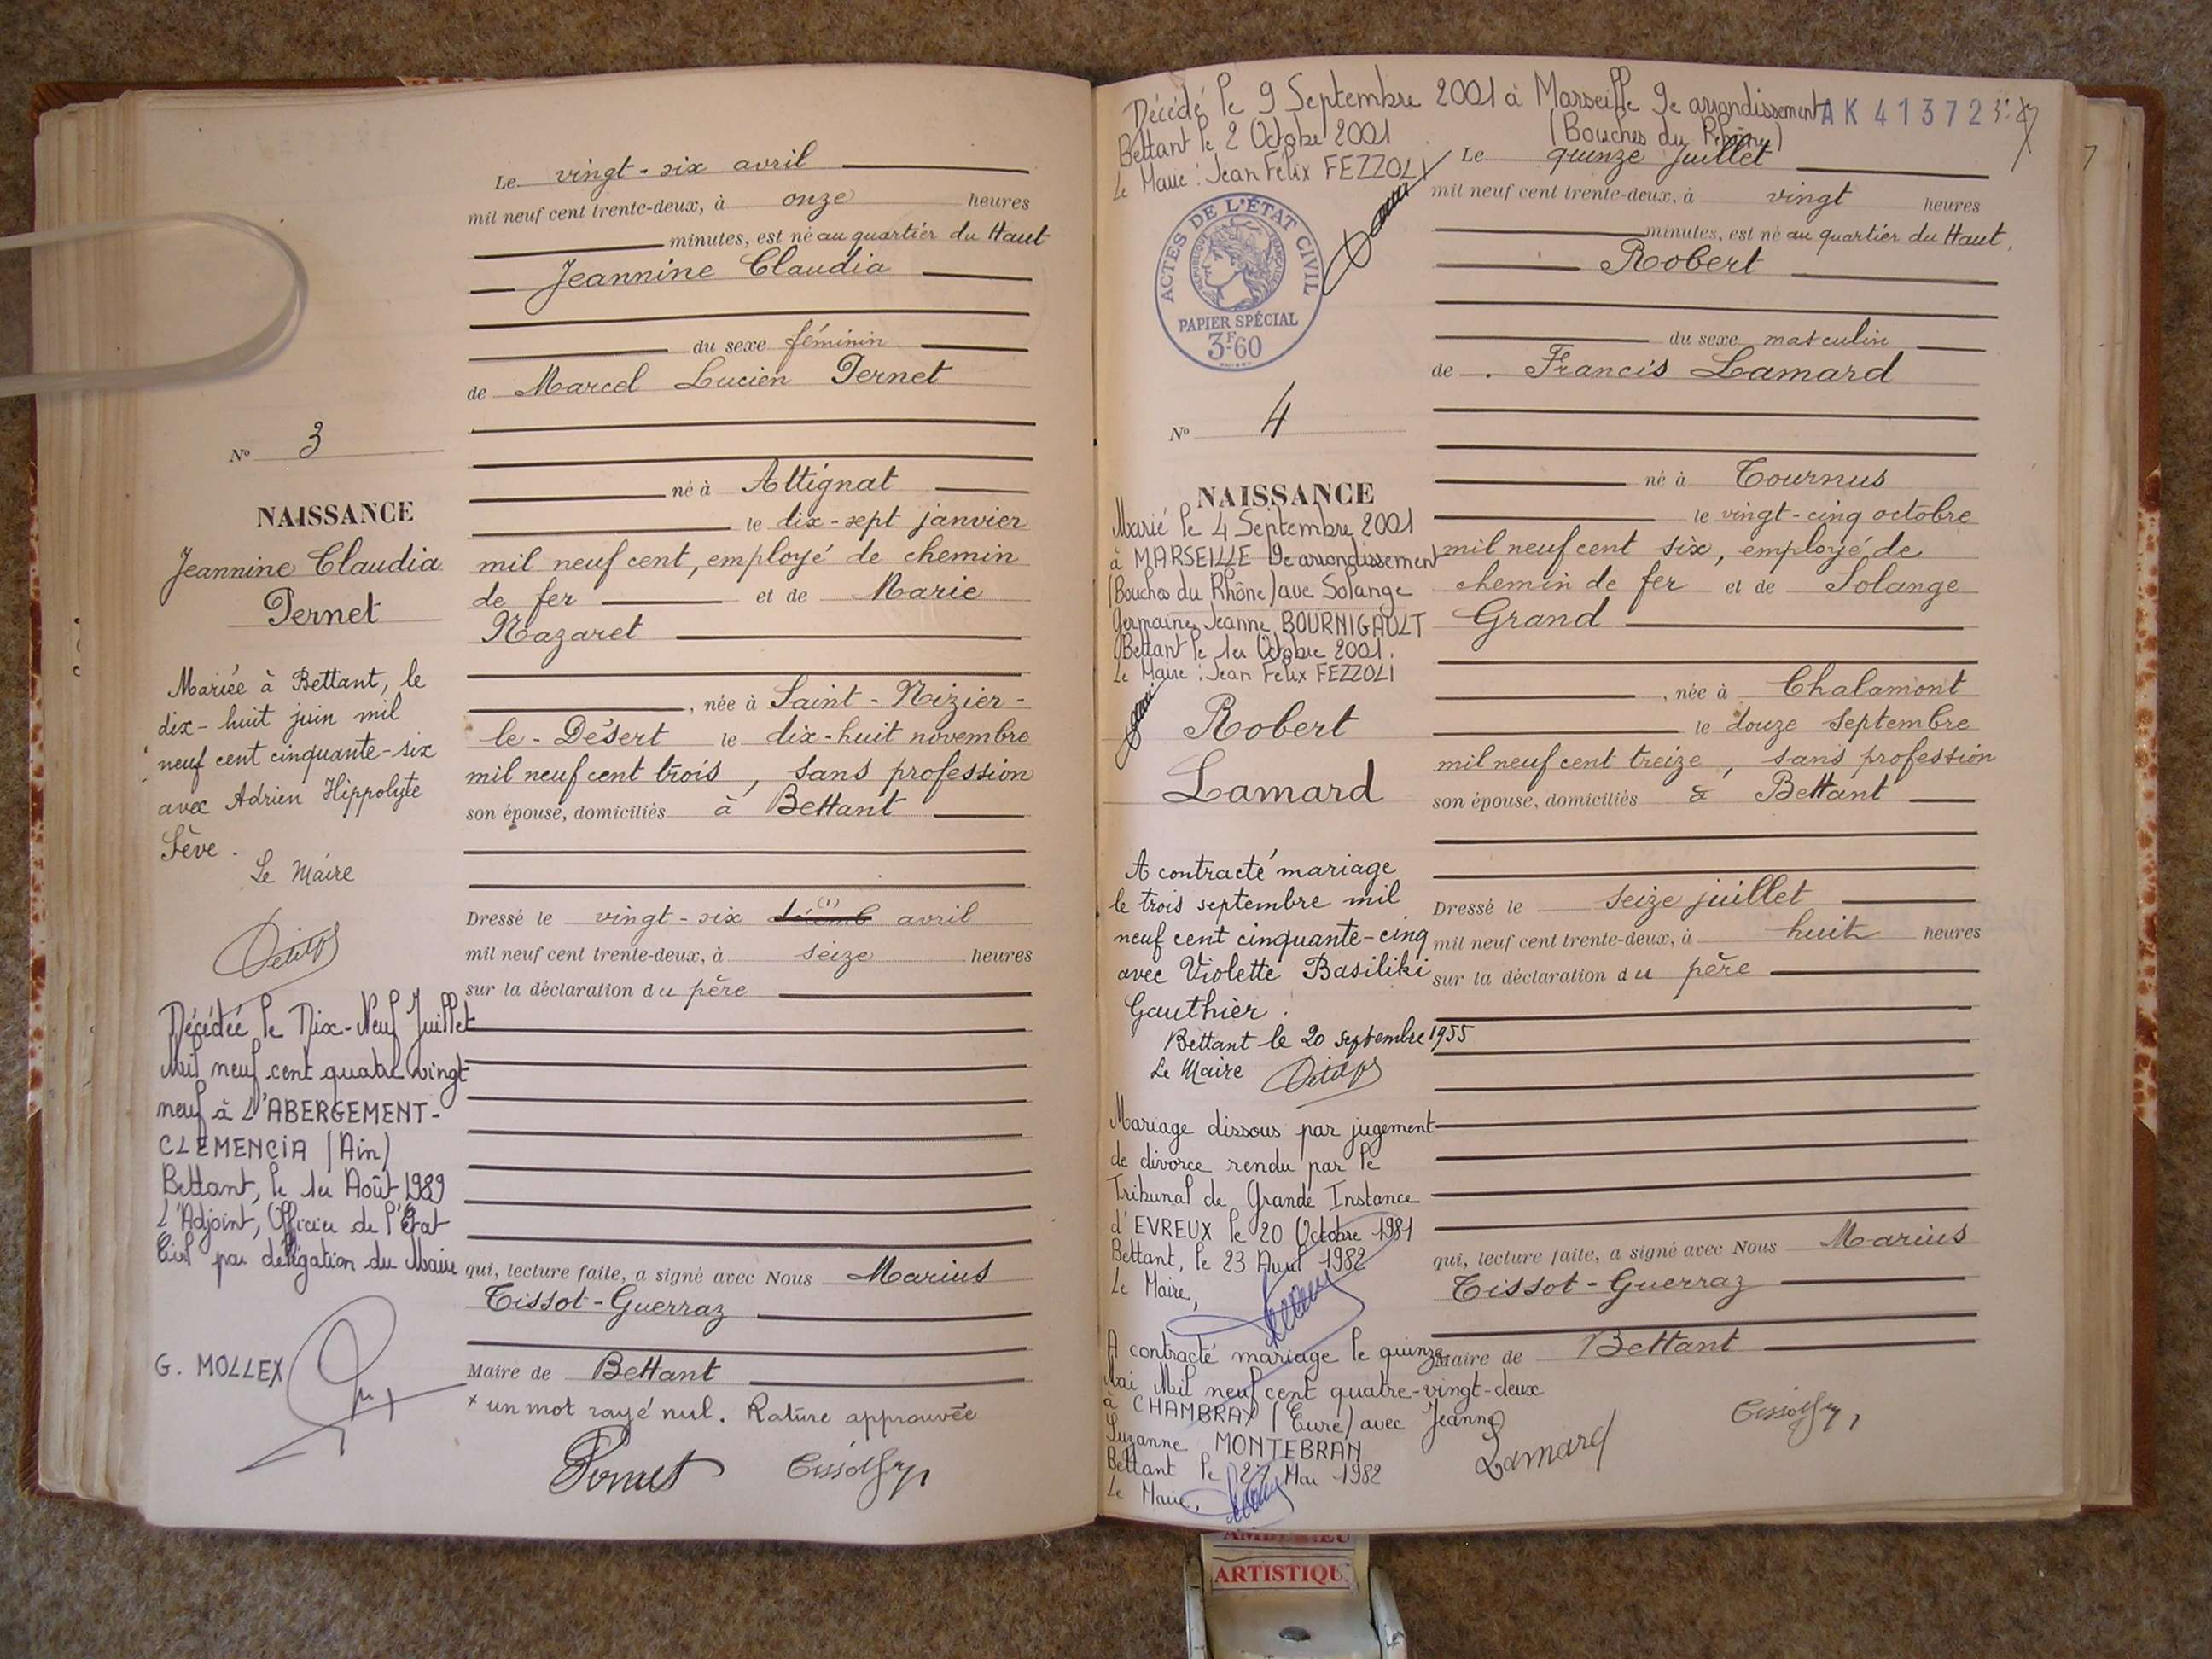 Le vingt-six avril
mil neuf cent trente-deux, à onze heures
minutes, est né au quartier du Haut
Jeannine Claudia
du sexe féminin
de Marcel Lucien Pernet
né à Attignat
le dix-sept janvier
mil neuf cent, employé de chemin
de fer et de Marie
Nazaret
, née à Saint-Nizier-
le-Désert le dix-huit novembre
mil neuf cent trois, sans profession
son épouse, domiciliés à Bettant
Dressé le vingt-six (1) avril
mil neuf cent trente-deux, à seize heures
sur la déclaration du père
qui, lecture faite, a signé avec Nous Marius
Tissot-Guerraz
Maire de Bettant
x un mot rayé nul. Rature approuvée
Pernet
No 3
NAISSANCE
Jeannine Claudia
Pernet
Mariée à Bettant, le
dix-huit juin mil
neuf cent cinquante-six
avec Adrien Hippolyte
Sève.
Le Maire
Décédée le Dix-Neuf Juillet
Mil neuf cent quatre vingt
neuf à L'ABERGEMENT-
CLEMENCIA (Ain)
Bettant, le 1er Août 1989
L'Adjoint, Officier de l'Etat
Civil par délégation du Maire
G. MOLLEX
Décédé le 9 Septembre 2001 à Marseille 9e arrondissement
(Bouches du Rhône)
Bettant le 2 Octobre 2001
Le Maire : Jean Félix FEZZOLI
AK 41372
7
ACTES DE L'ÉTAT CIVIL
RÉPUBLIQUE FRANÇAISE
PAPIER SPÉCIAL
3F60
No 4
NAISSANCE
Marié le 4 Septembre 2001
à MARSEILLE 9e arrondissement
(Bouches du Rhône) avec Solange
Germaine Jeanne BOURNIGAULT
Bettant le 1er Octobre 2001.
Le Maire : Jean Félix FEZZOLI
Robert
Lamard
A contracté mariage
le trois septembre mil
neuf cent cinquante-cinq
avec Violette Basiliki
Gauthier.
Bettant le 20 septembre 1955
Le Maire
Mariage dissous par jugement
de divorce rendu par le
Tribunal de Grande Instance
d'EVREUX le 20 Octobre 1981
Bettant, le 23 Avril 1982
Le Maire,
A contracté mariage le quinze
Mai Mil neuf cent quatre-vingt-deux
à CHAMBRAY (Eure) avec Jeanne
Suzanne MONTEBRAN
Bettant le Mai 1982
Le Maire,
Le quinze Juillet
mil neuf cent trente-deux, à vingt heures
minutes, est né au quartier du Haut.
Robert
du sexe masculin
de Francis Lamard
né à Tournus
le vingt-cinq octobre
mil neuf cent six, employé de
chemin de fer et de Solange
Grand
, née à Chalamont
le douze septembre
mil neuf cent treize, sans profession
son épouse, domiciliés à Bettant
Dressé le seize juillet
mil neuf cent trente-deux, à huit heures
sur la déclaration du père
qui, lecture faite, a signé avec Nous Marius
Tissot-Guerraz
Maire de Bettant
Lamard
ARTISTIQU